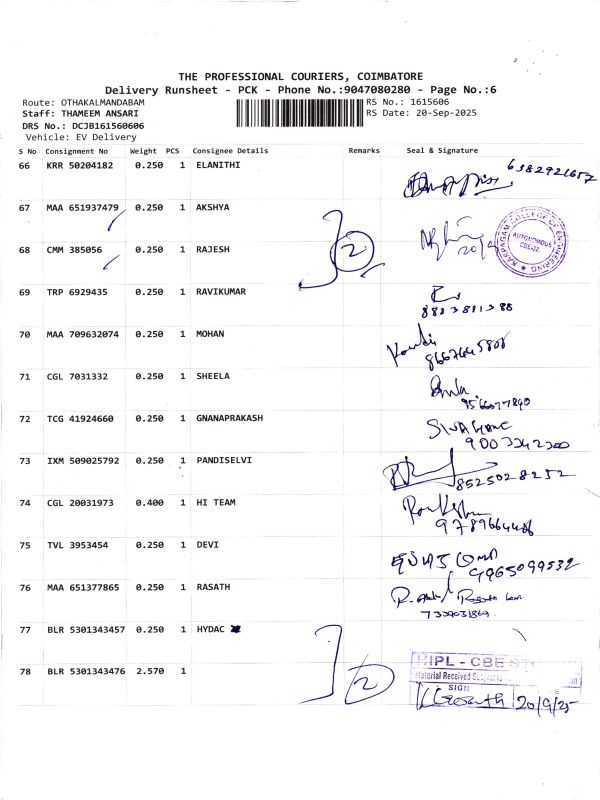 THE PROFESSIONAL COURIERS, COIMBATORE
Delivery Runsheet - PCK - Phone No.:9047080280 - Page No.:6
Route: OTHAKALMANDABAM
Staff: THAMEEM ANSARI
DRS No.: DCJB161560606
Vehicle: EV Delivery
RS No.: 1615606
RS Date: 20-Sep-2025
S No Consignment No Weight PCS Consignee Details Remarks Seal & Signature
66 KRR 50204182 0.250 1 ELANITHI 6382921657
67 MAA 651937479 0.250 1 AKSHYA
KARPAGAM COLLEGE OF ENGINEERING
AUTONOMOUS
CBE-32
68 CMM 385056 0.250 1 RAJESH 2
69 TRP 6929435 0.250 1 RAVIKUMAR
8883881388
70 MAA 709632074 0.250 1 MOHAN
71 CGL 7031332 0.250 1 SHEELA
72 TCG 41924660 0.250 1 GNANAPRAKASH
9003342300
73 IXM 509025792 0.250 1 PANDISELVI
8525028252
74 CGL 20031973 0.400 1 HI TEAM
9789664486
75 TVL 3953454 0.250 1 DEVI
9965099532
76 MAA 651377865 0.250 1 RASATH
77 BLR 5301343457 0.250 1 HYDAC
78 BLR 5301343476 2.570 1 2
HIPL - CBE
Material Received Subject to
SIGN
20/9/25